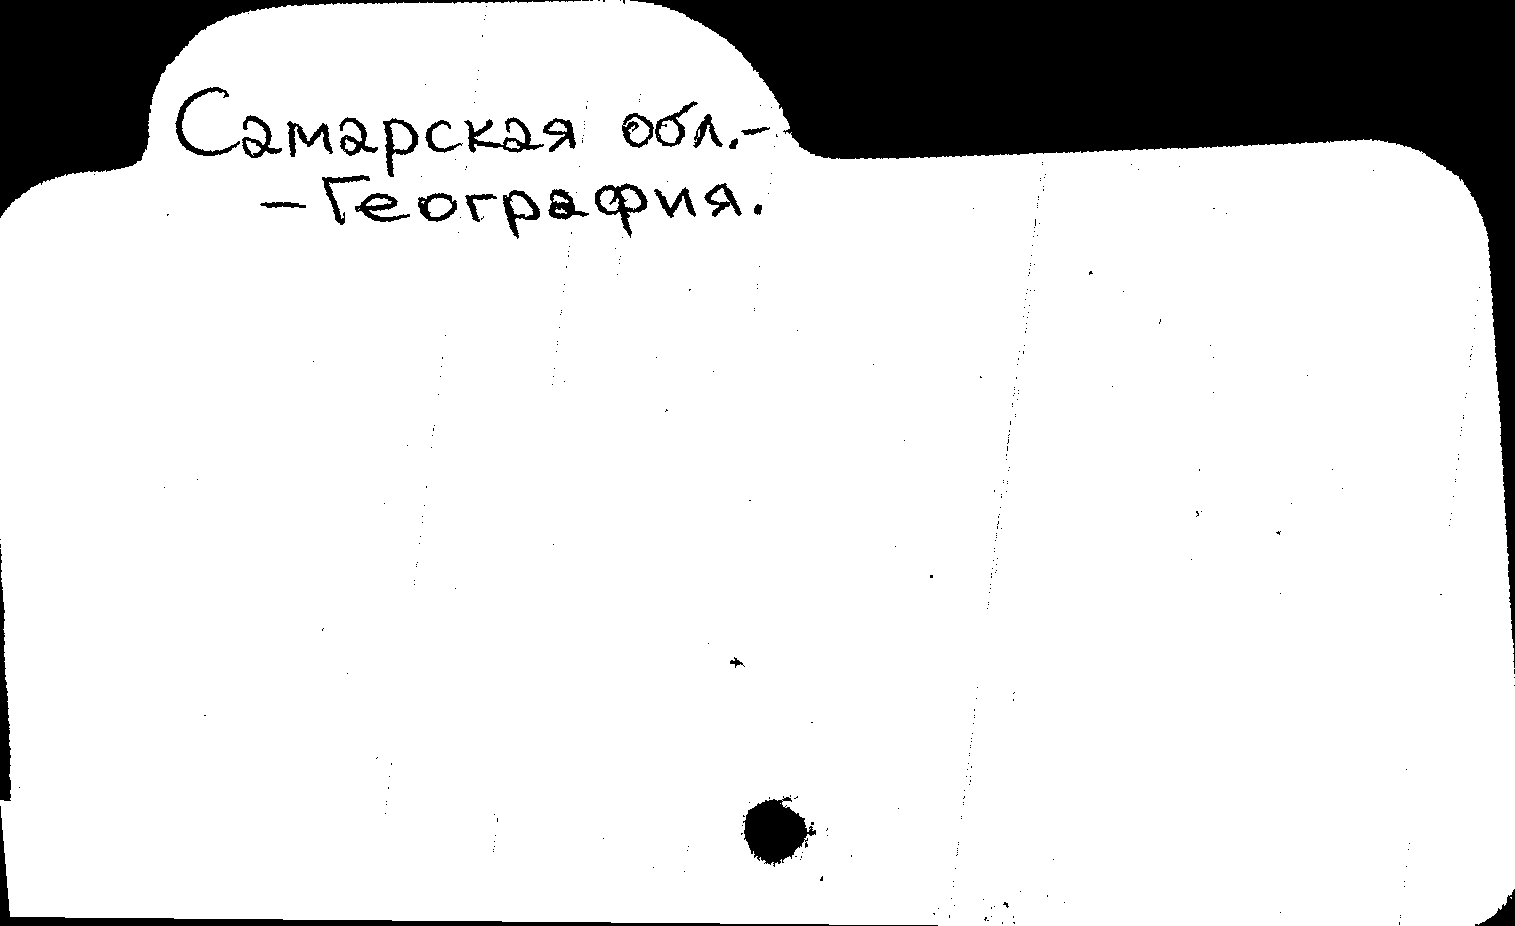 Самарская обл.-
-География.